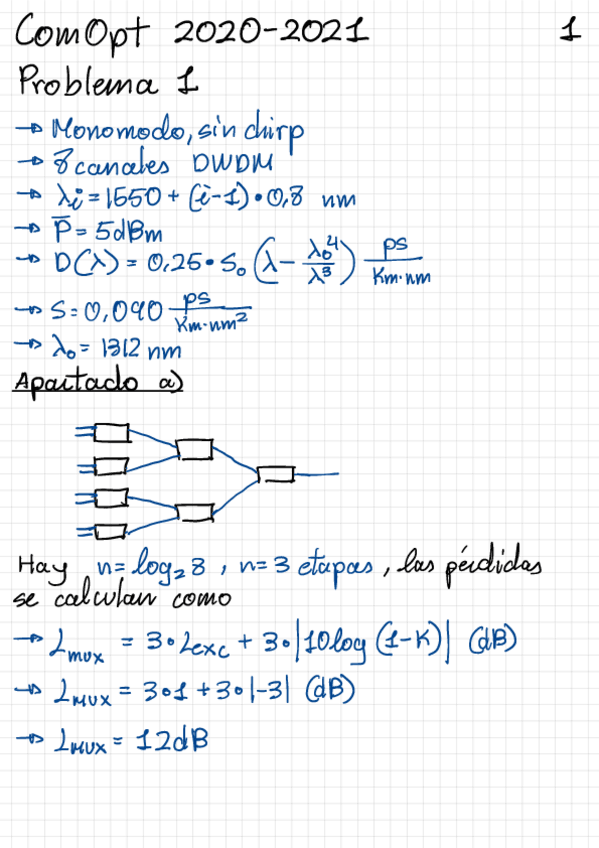 ComOpt 2020-2021 1
Problema 1
→ Monomodo, sin chirp
→ 8 canales DWDM
→ λi = 1550 + (i-1)·0,8 nm
→ P̅ = 5dBm
→ D(λ) = 0,25·S₀ (λ - λ₀⁴/λ³) ps/Km·nm
→ S = 0,090 ps/Km·nm²
→ λ₀ = 1312 nm
Apartado a)
Hay n = log₂8 , n = 3 etapas, las pérdidas
se calculan como
→ Lmux = 3·Lexc + 3·|10log (1-K)| (dB)
→ LMUX = 3·1 + 3·|-3| (dB)
→ LMUX = 12dB